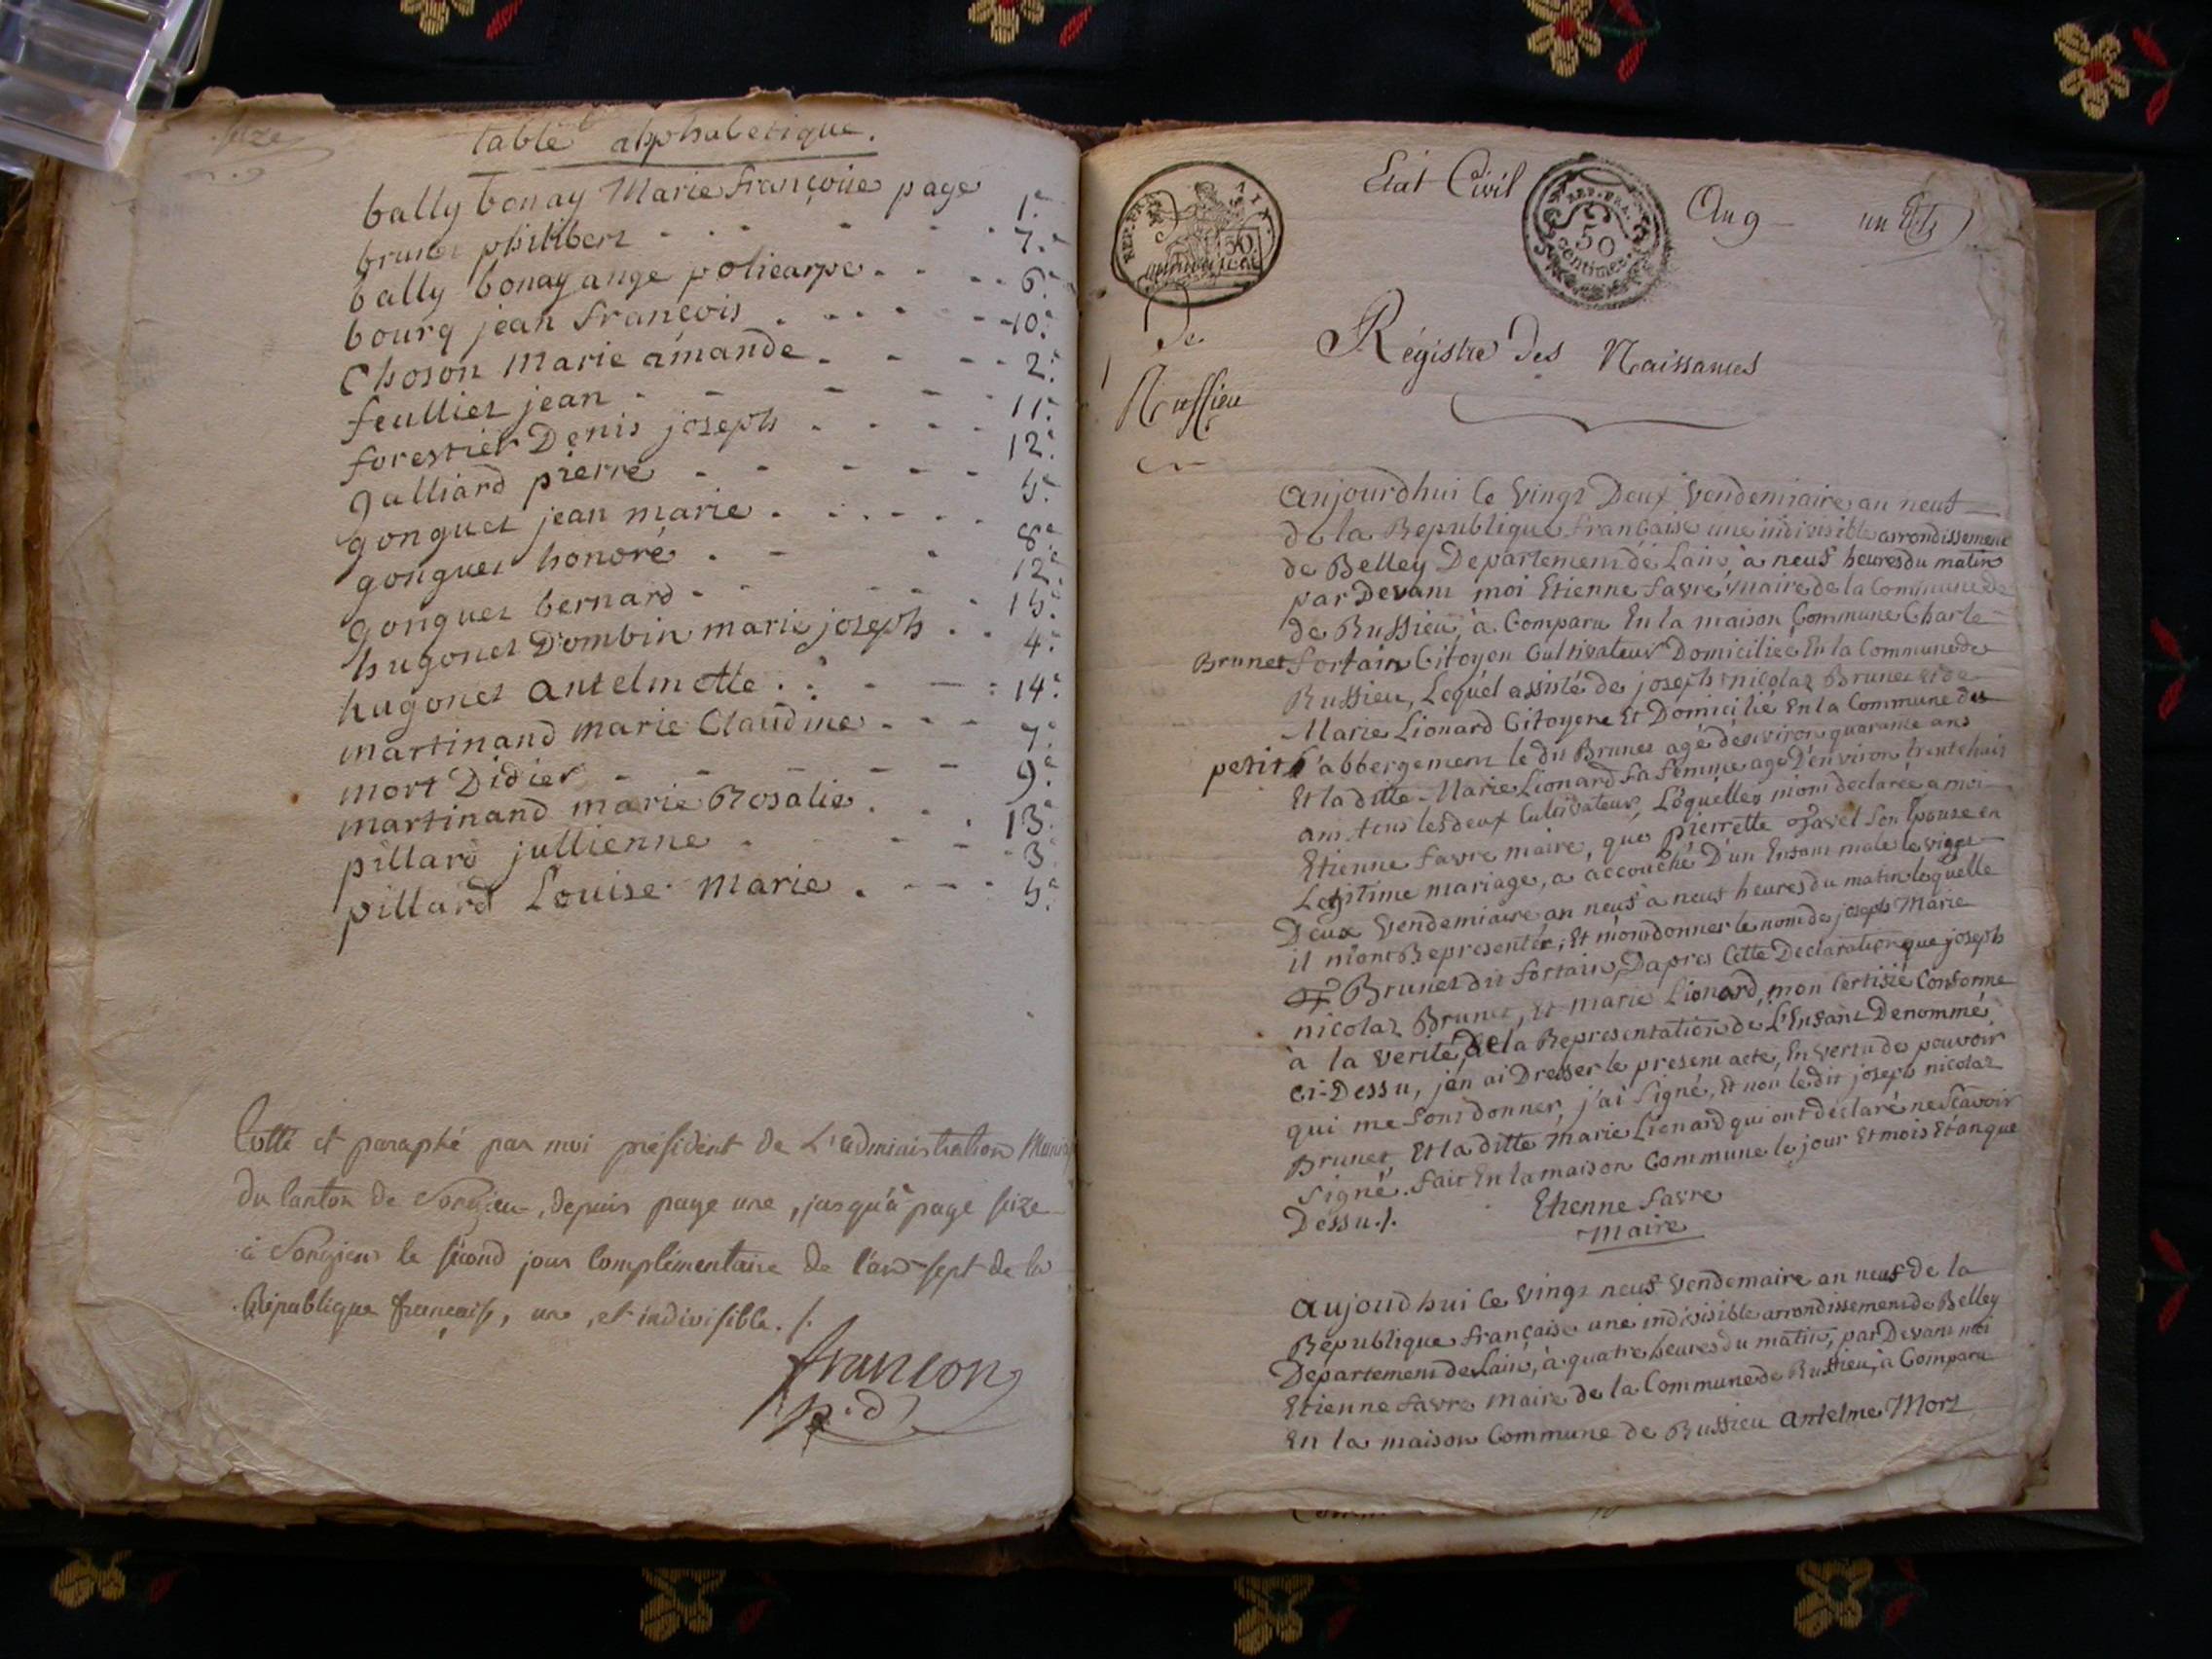 seize
table alphabetique.
bally bonay Marie françoise page 1.e
brunet philibert - - - - 7.e
bally bonay ange policarpe - - - 6.e
bourg jean françois - - - - 10.e
Choson Marie amande - - - 2.e
feullier jean - - - - 11.e
forestier Denis joseph - - - - 12.e
galliard pierre - - - - 5.e
gonguet jean marie - - - - 8.e
gonguet honoré - - - 12.e
gonguet bernard - - - 15.e
hugonet Dombin marie joseph . . 4.e
hugonet antelmette - - - 14.e
martinand marie Claudine - - - 7.e
mort Didier - - - - 9.e
martinand marie Rosalie . . . 13.e
pillard jullienne - - - - 3.e
pillard Louise Marie . - - - 5.e
Cotté et paraphé par moi président de L'administration
du Canton de Songieu, depuis page une, jusqu'à page seize
à Songieu le second jour Complémentaire de l'an sept de la
République française, une, et indivisible ./.
françon
p.d
REP. FRA.
Etat Civil
REP. FRA.
50
centimes
An 9 un
De
Ruffieu
Régistre des Naissances
Aujourdhui le vingt Deux Vendemiaire an neuf
de la Republique française une indivisible arrondissement
de Belley Departement de Lain, à neuf heures du matin
par Devant moi Etienne favre maire de la Commune de
de Russieu, à Comparu En la maison Commune Charle
Brunet fortain Citoyen Cultivateur Domiciliée En la Commune de
Russieu, Lequel assisté de joseph nicolas Brunet et de
Marie Lionard Citoyene Et Domicilié En la Commune du
petit l'abbergement le dit Brunet agé d'environ quarante ans
Et la ditte Marie Lionard sa femme agé D'environ trente huit
ans tous les deux Cultivateur, Lequelles m'ont declarée a moi
Etienne favre maire, que pierrette Javet son Epouse en
Legitime mariage, a accouché D'un Enfant male le vingt
Deux Vendemiaire an neuf à neuf heures du matin lequelle
il m'ont Representér, Et m'ont donner le nom de joseph Marie
Brunet dit fortain, Dapres Cette Declaration que joseph
nicolas Brunet, Et marie Lionard, mon Certifié Conforme
à la verité, De la Representation de L'Enfant Denommé
ci-Dessu, jen ai Dresser le present acte, En vertu de pouvoir
qui me sont donner, j'ai Signé, Et non le dit joseph nicolas
Brunet Et la ditte Marie Lionard qui ont déclaré ne Scavoir
Signé. fait En la maison Commune le jour Et mois Et an que
Dessu./.
Etienne favre
maire
Aujoudhui le vingt neuf Vendemaire an neuf de la
Republique française une indivisible arrondissement de Belley
Departement de Lain, à quatre heures du matin, par Devant moi
Etienne favre maire de la Commune de Russieu, à Comparu
En la maison Commune de Russieu Antelme Mort